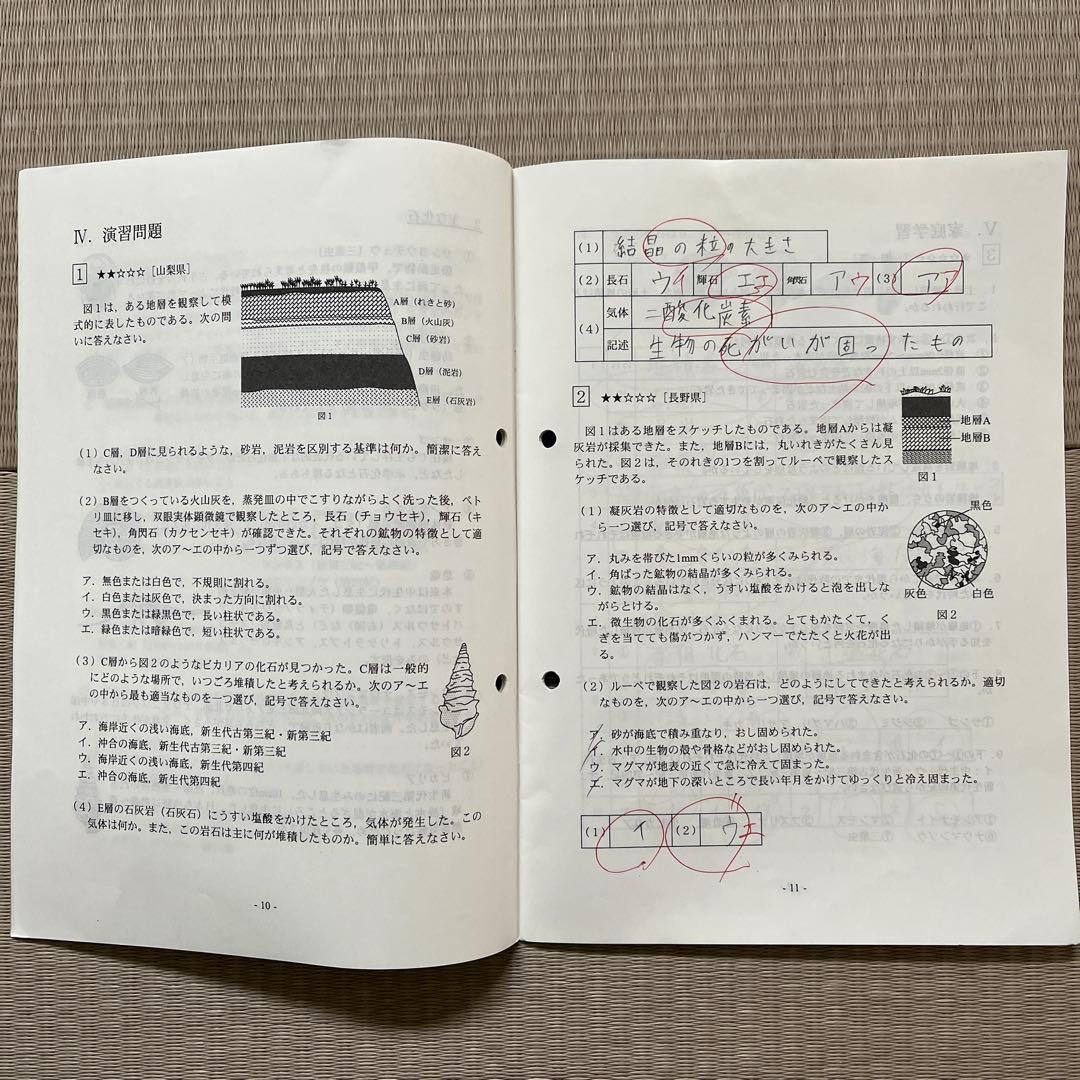 Ⅳ．演習問題
1 ★★☆☆☆［山梨県］
図１は，ある地層を観察して模
式的に表したものである。次の問
いに答えなさい。
A層（れきと砂）
B層（火山灰）
C層（砂岩）
D層（泥岩）
E層（石灰岩）
図１
（１）C層，D層に見られるような，砂岩，泥岩を区別する基準は何か。簡潔に答え
なさい。
（２）B層をつくっている火山灰を，蒸発皿の中でこすりながらよく洗った後，ペト
リ皿に移し，双眼実体顕微鏡で観察したところ，長石（チョウセキ），輝石（キ
セキ），角閃石（カクセンセキ）が確認できた。それぞれの鉱物の特徴として適
切なものを，次のア～エの中から一つずつ選び，記号で答えなさい。
ア．無色または白色で，不規則に割れる。
イ．白色または灰色で，決まった方向に割れる。
ウ．黒色または緑黒色で，長い柱状である。
エ．緑色または暗緑色で，短い柱状である。
（３）C層から図２のようなビカリアの化石が見つかった。C層は一般的
にどのような場所で，いつごろ堆積したと考えられるか。次のア～エ
の中から最も適当なものを一つ選び，記号で答えなさい。
ア．海岸近くの浅い海底，新生代古第三紀・新第三紀
イ．沖合の海底，新生代古第三紀・新第三紀
ウ．海岸近くの浅い海底，新生代第四紀
エ．沖合の海底，新生代第四紀
図２
（４）E層の石灰岩（石灰石）にうすい塩酸をかけたところ，気体が発生した。この
気体は何か。また，この岩石は主に何が堆積したものか。簡単に答えなさい。
- 10 -
（１） 結晶の粒の大きさ
（２） 長石 ウイ 輝石 エエ 角閃石 アウ （３） アア
（４） 気体 二酸化炭素
記述 生物の死がいが固ったもの
2 ★★☆☆☆［長野県］
図１はある地層をスケッチしたものである。地層Aからは凝
灰岩が採集できた。また，地層Bには，丸いれきがたくさん見
られた。図２は，そのれきの1つを割ってルーペで観察したス
ケッチである。
地層A
地層B
図１
（１）凝灰岩の特徴として適切なものを，次のア～エの中か
ら一つ選び，記号で答えなさい。
ア．丸みを帯びた1mmくらいの粒が多くみられる。
イ．角ばった鉱物の結晶が多くみられる。
ウ．鉱物の結晶はなく，うすい塩酸をかけると泡を出しな
がらとける。
エ．微生物の化石が多くふくまれる。とてもかたくて，く
ぎを当てても傷がつかず，ハンマーでたたくと火花が出
る。
黒色
灰色
白色
図２
（２）ルーペで観察した図２の岩石は，どのようにしてできたと考えられるか。適切
なものを，次のア～エの中から一つ選び，記号で答えなさい。
ア．砂が海底で積み重なり，おし固められた。
イ．水中の生物の殻や骨格などがおし固められた。
ウ．マグマが地表の近くで急に冷えて固まった。
エ．マグマが地下の深いところで長い年月をかけてゆっくりと冷え固まった。
（１） イ （２） ウエ
- 11 -